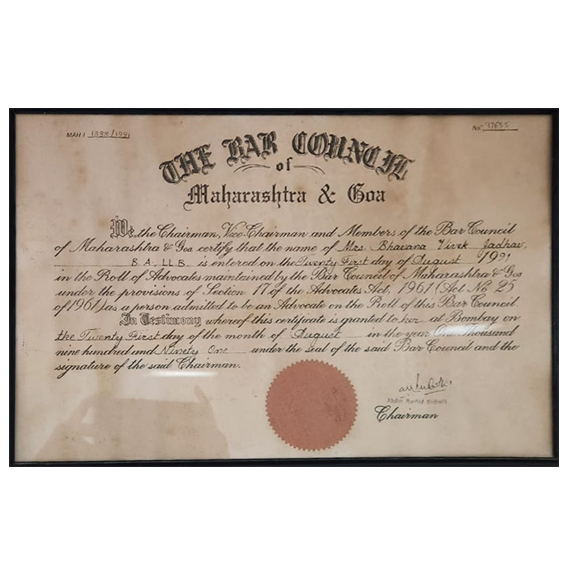 MAH / 1338/1991
No.
THE BAR COUNCIL
of
Maharashtra & Goa
We, the Chairman, Vice-Chairman and Members of the Bar Council
of Maharashtra & Goa certify that the name of Mrs Bhavana Vivek Jadhav
B.A. LL B. is entered on the Twenty First day of August 1991
in the Roll of Advocates maintained by the Bar Council of Maharashtra & Goa
under the provisions of Section 17 of the Advocates Act, 1961 (Act No. 25
of 1961) as a person admitted to be an Advocate on the Roll of this Bar Council
In Testimony whereof this certificate is granted to her at Bombay on
the Twenty First day of the month of August in the year One thousand
nine hundred and Ninety One under the seal of the said Bar Council and the
signature of the said Chairman.
Chairman